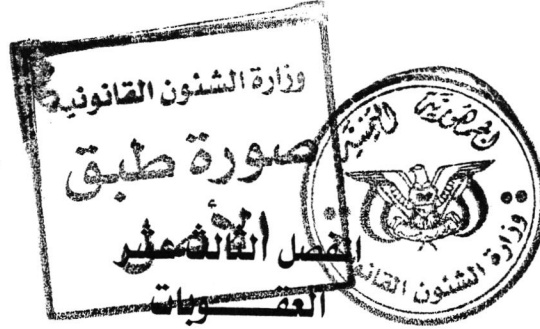 وزارة الشئون القانونية
صورة طبق
الأصل
الفصل الثالث عشر
العقـــوبات
الجمهورية اليمنية
وزارة الشئون القانونية